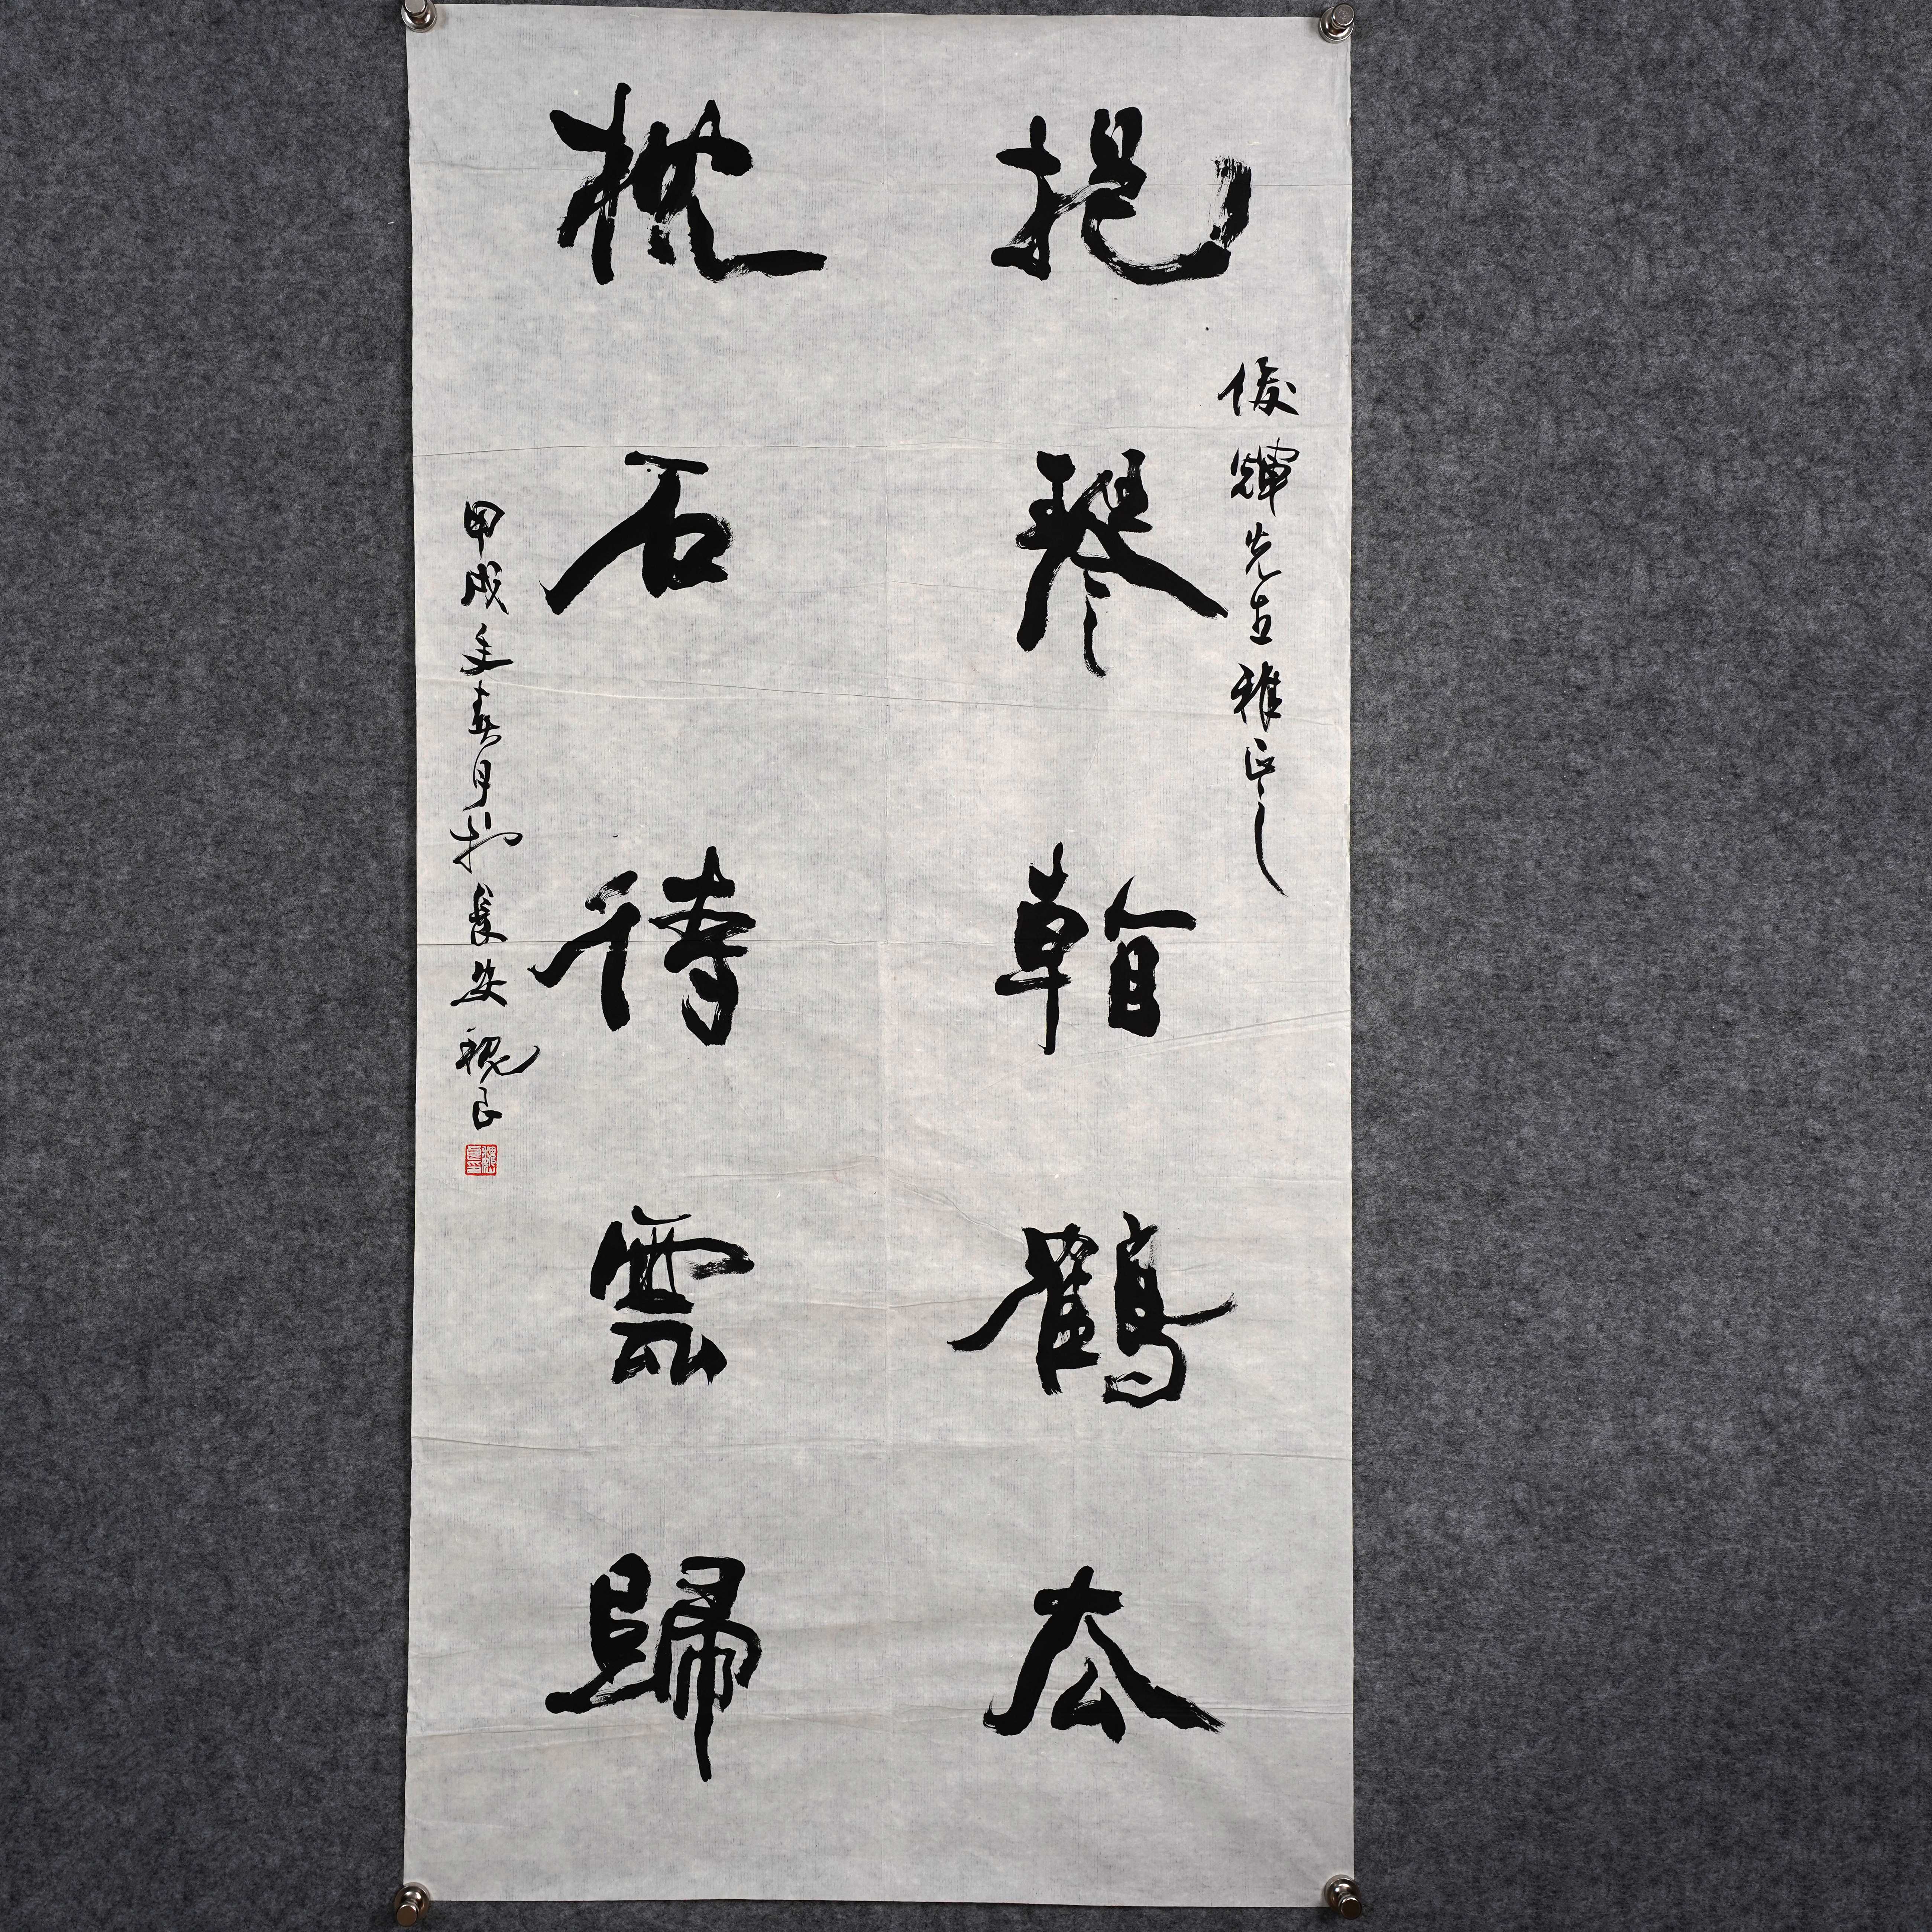 抱琴看鶴厺
俊輝先生雅正之
枕石待雲歸
甲戌年春月於長安魏良